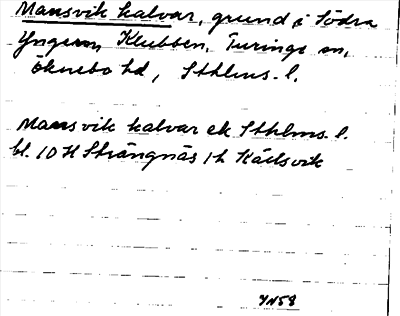 Mansvik kalvar, grund i Södra
Yngern, Klubben, Turinge sn,
Öknebo hd, Sthlms. l.
Mansvik kalvar ek Sthlms. l.
bl. 10 H Strängnäs 1 h Kärlsvik
YN58